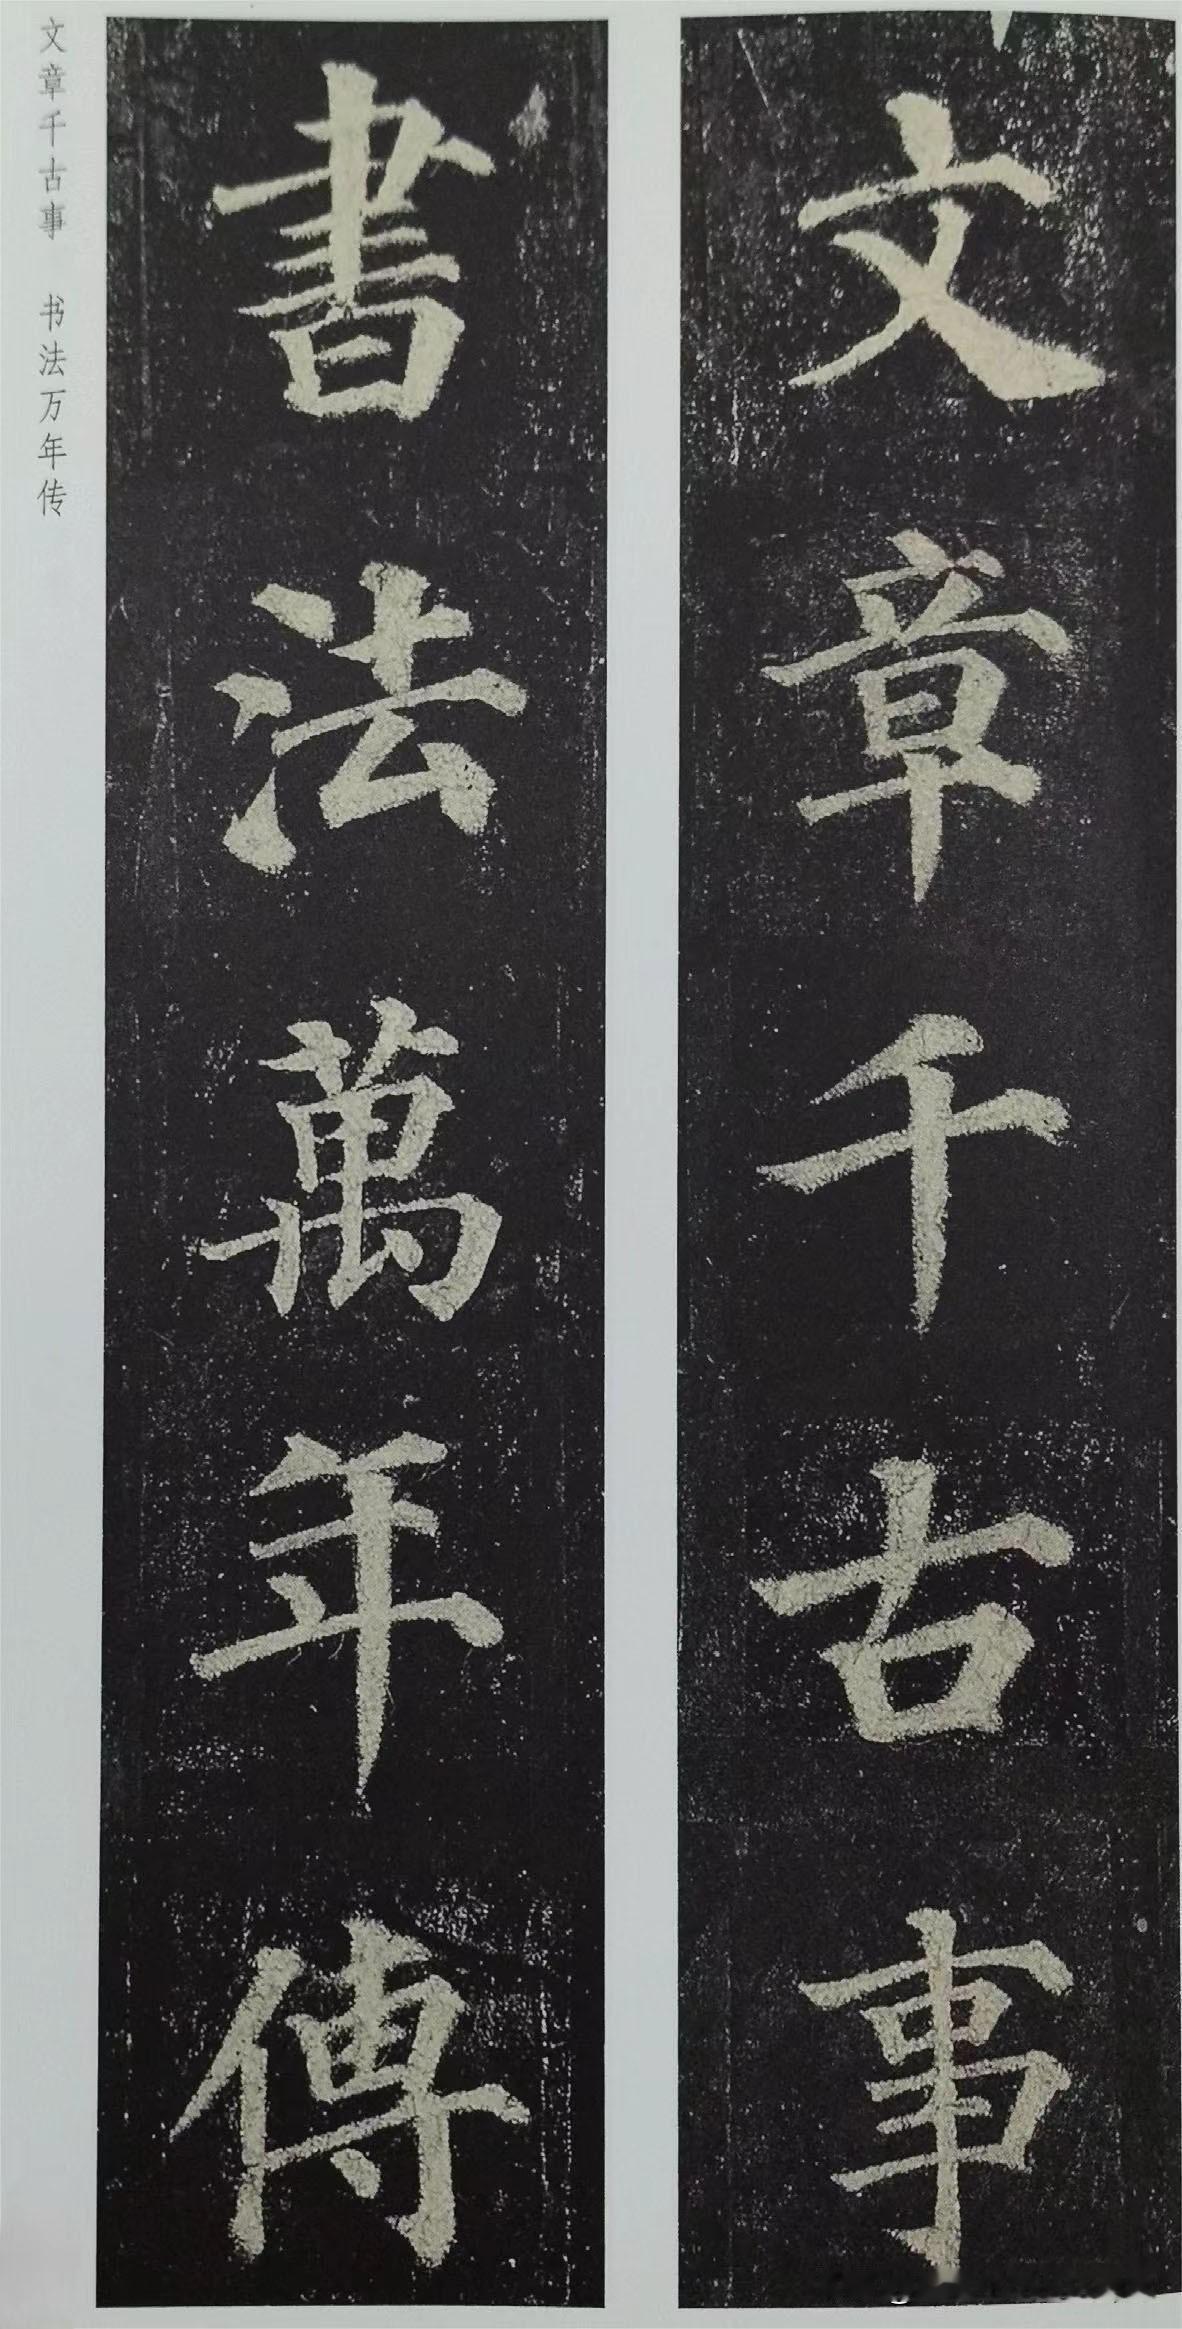 文章千古事
書法萬年傳
文章千古事 书法万年传